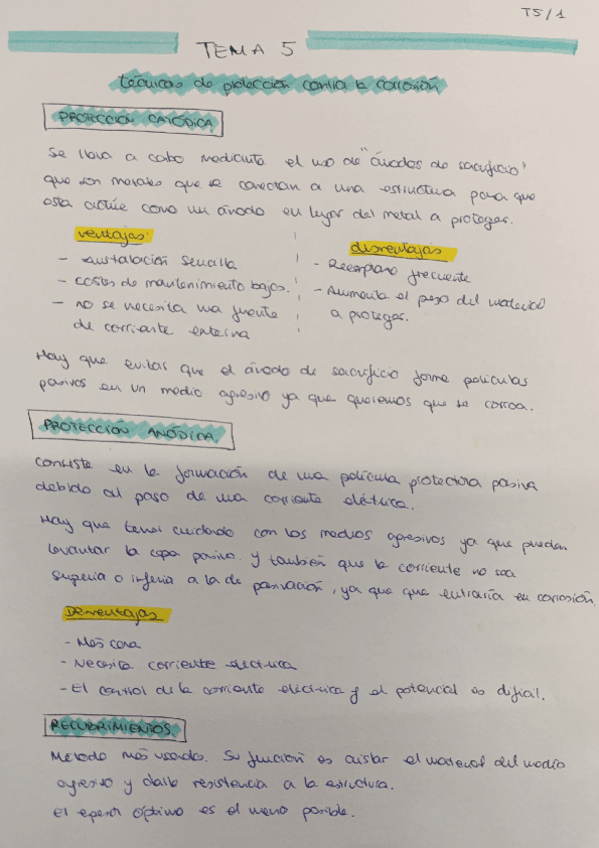 T5/1
TEMA 5
técnicas de protección contra la corrosión
PROTECCIÓN CATÓDICA
Se lleva a cabo mediante el uso de "ánodos de sacrificio"
que son metales que se conectan a una estructura para que
esta actúe como un ánodo en lugar del metal a proteger.
ventajas:
- Instalación sencilla
- costes de mantenimiento bajos.
- no se necesita una fuente
de corriente externa
desventajas
- Reemplazo frecuente
- Aumenta el peso del material
a proteger.
Hay que evitar que el ánodo de sacrificio forme películas
pasivas en un medio agresivo ya que queremos que se corroa.
PROTECCIÓN ANÓDICA.
Consiste en la formación de una película protectora pasiva
debido al paso de una corriente eléctrica.
Hay que tener cuidado con los medios agresivos ya que pueden
levantar la capa pasiva. y también que la corriente no sea
superior o inferior a la de pasivación, ya que que entraría en corrosión.
Desventajas
- Más cara
- Necesita corriente eléctrica
- El control de la corriente eléctrica y el potencial es difícil.
RECUBRIMIENTOS.
Método más usado. Su función es aislar el material del medio
agresivo y darle resistencia a la estructura.
El óptimo es el menor posible.